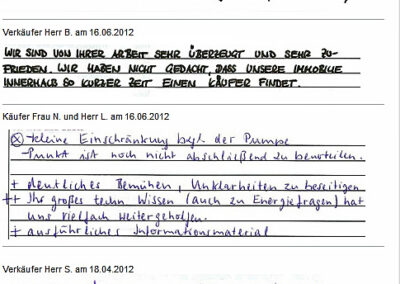 Verkäufer Herr B. am 16.06.2012
WIR SIND VON IHRER ARBEIT SEHR ÜBERZEUGT UND SEHR ZU-
FRIEDEN. WIR HABEN NICHT GEDACHT, DASS UNSERE IMMOBILIE
INNERHALB SO KURZER ZEIT EINEN KÄUFER FINDET.
Käufer Frau N. und Herr L. am 16.06.2012
kleine Einschränkung bzgl. der Pumpe
- Punkt ist noch nicht abschließend zu beurteilen.
+ deutliches Bemühen, Unklarheiten zu beseitigen
++ Ihr großes techn Wissen (auch zu Energiefragen) hat
uns vielfach weitergeholfen.
+ ausführliches Informationsmaterial
Verkäufer Herr S. am 18.04.2012